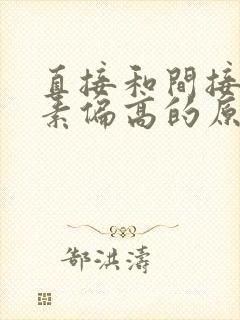 直接和間接
素偏高的原
郜洪濤